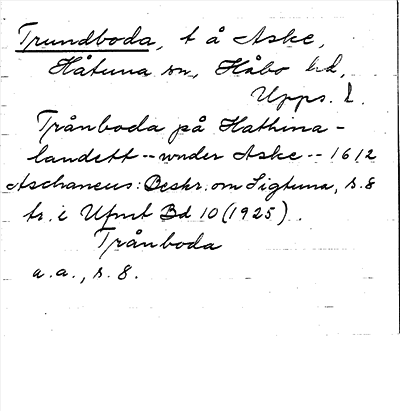 Trundboda, t å Aske,
Håtuna sn, Håbo hd,
Upps. l.
Trånboda på Hathina-
landett -- wnder Aske -- 1612
Aschaneus: Beskr. om Sigtuna, s. 8
tr. i Ufmt Bd 10 (1925).
Trånboda
a.a., s. 8.